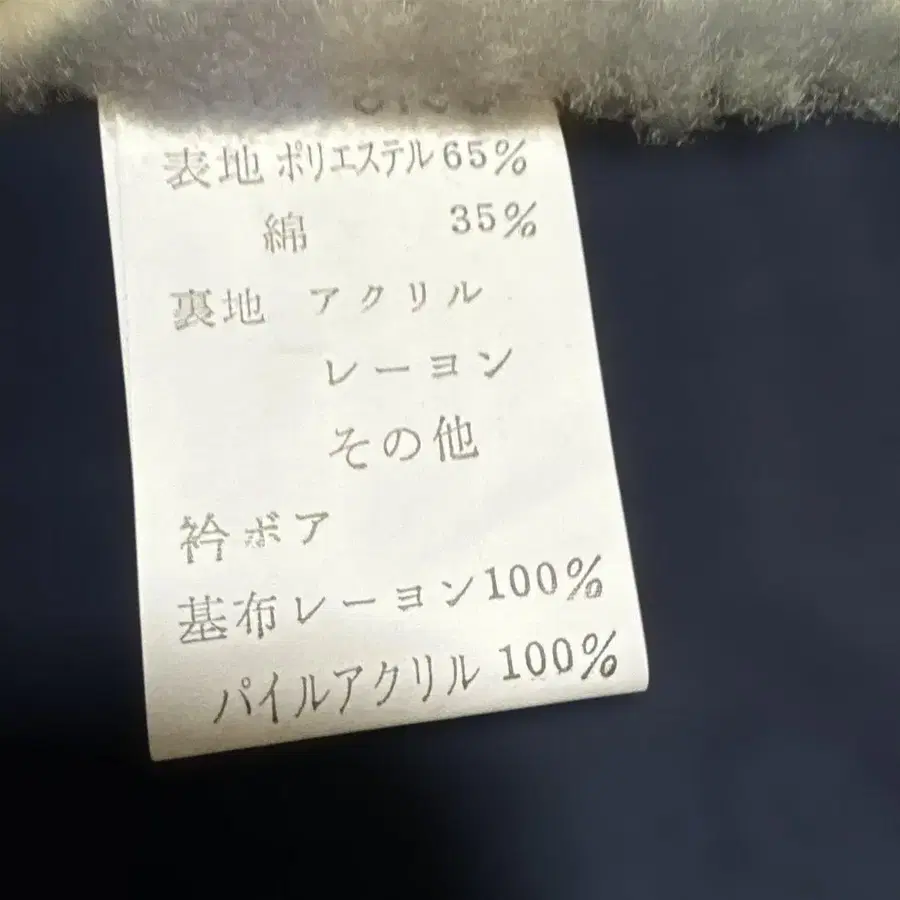 表地 ポリエステル 65%
綿 35%
裏地 アクリル
レーヨン
その他
衿ボア
基布レーヨン100%
パイルアクリル 100%